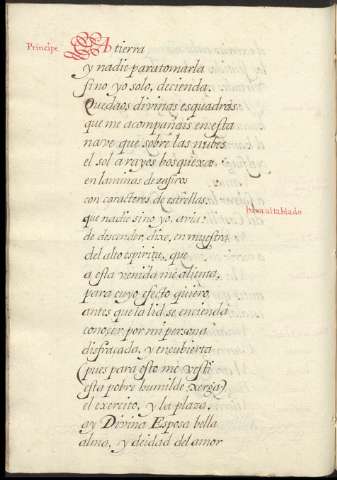 Principe
A tierra
y nadie para tomarla
sino yo solo, decienda.
Quedaos divinas esquadras
que me acompañais en esta
nave que sobre las nubes
el sol a rayos bosquexa
en laminas de zafiros
con caracteres de estrellas.
baxa al tablado
que nadie sino yo, avia
de descender, dixe, en muestra
del alto espiritu, que
a esta venida me alienta,
para cuyo efecto quiero,
antes que la lid se encienda
conocer por mi persona
disfraçada, y encubierta
(pues para esto me vesti
esta pobre humilde xerga)
el exercito, y la plaza,
ay Divina Esposa bella
alma, y deidad del amor